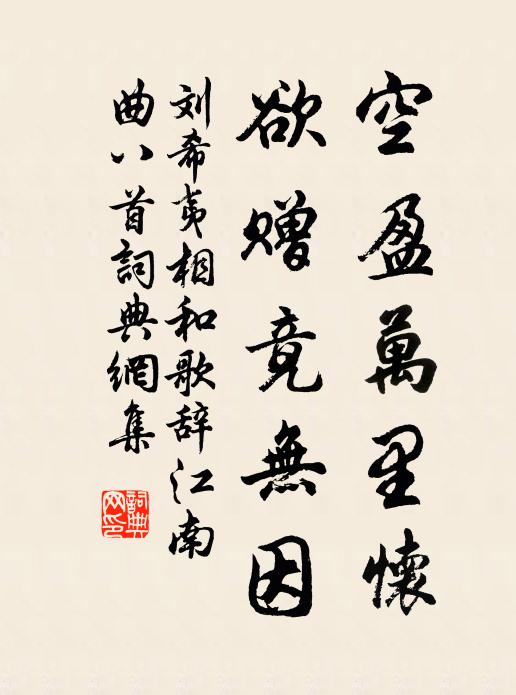 空盈萬里懷
欲贈竟無因
刘希夷相和歌辞江南
曲八首詞典網集
詞典網印